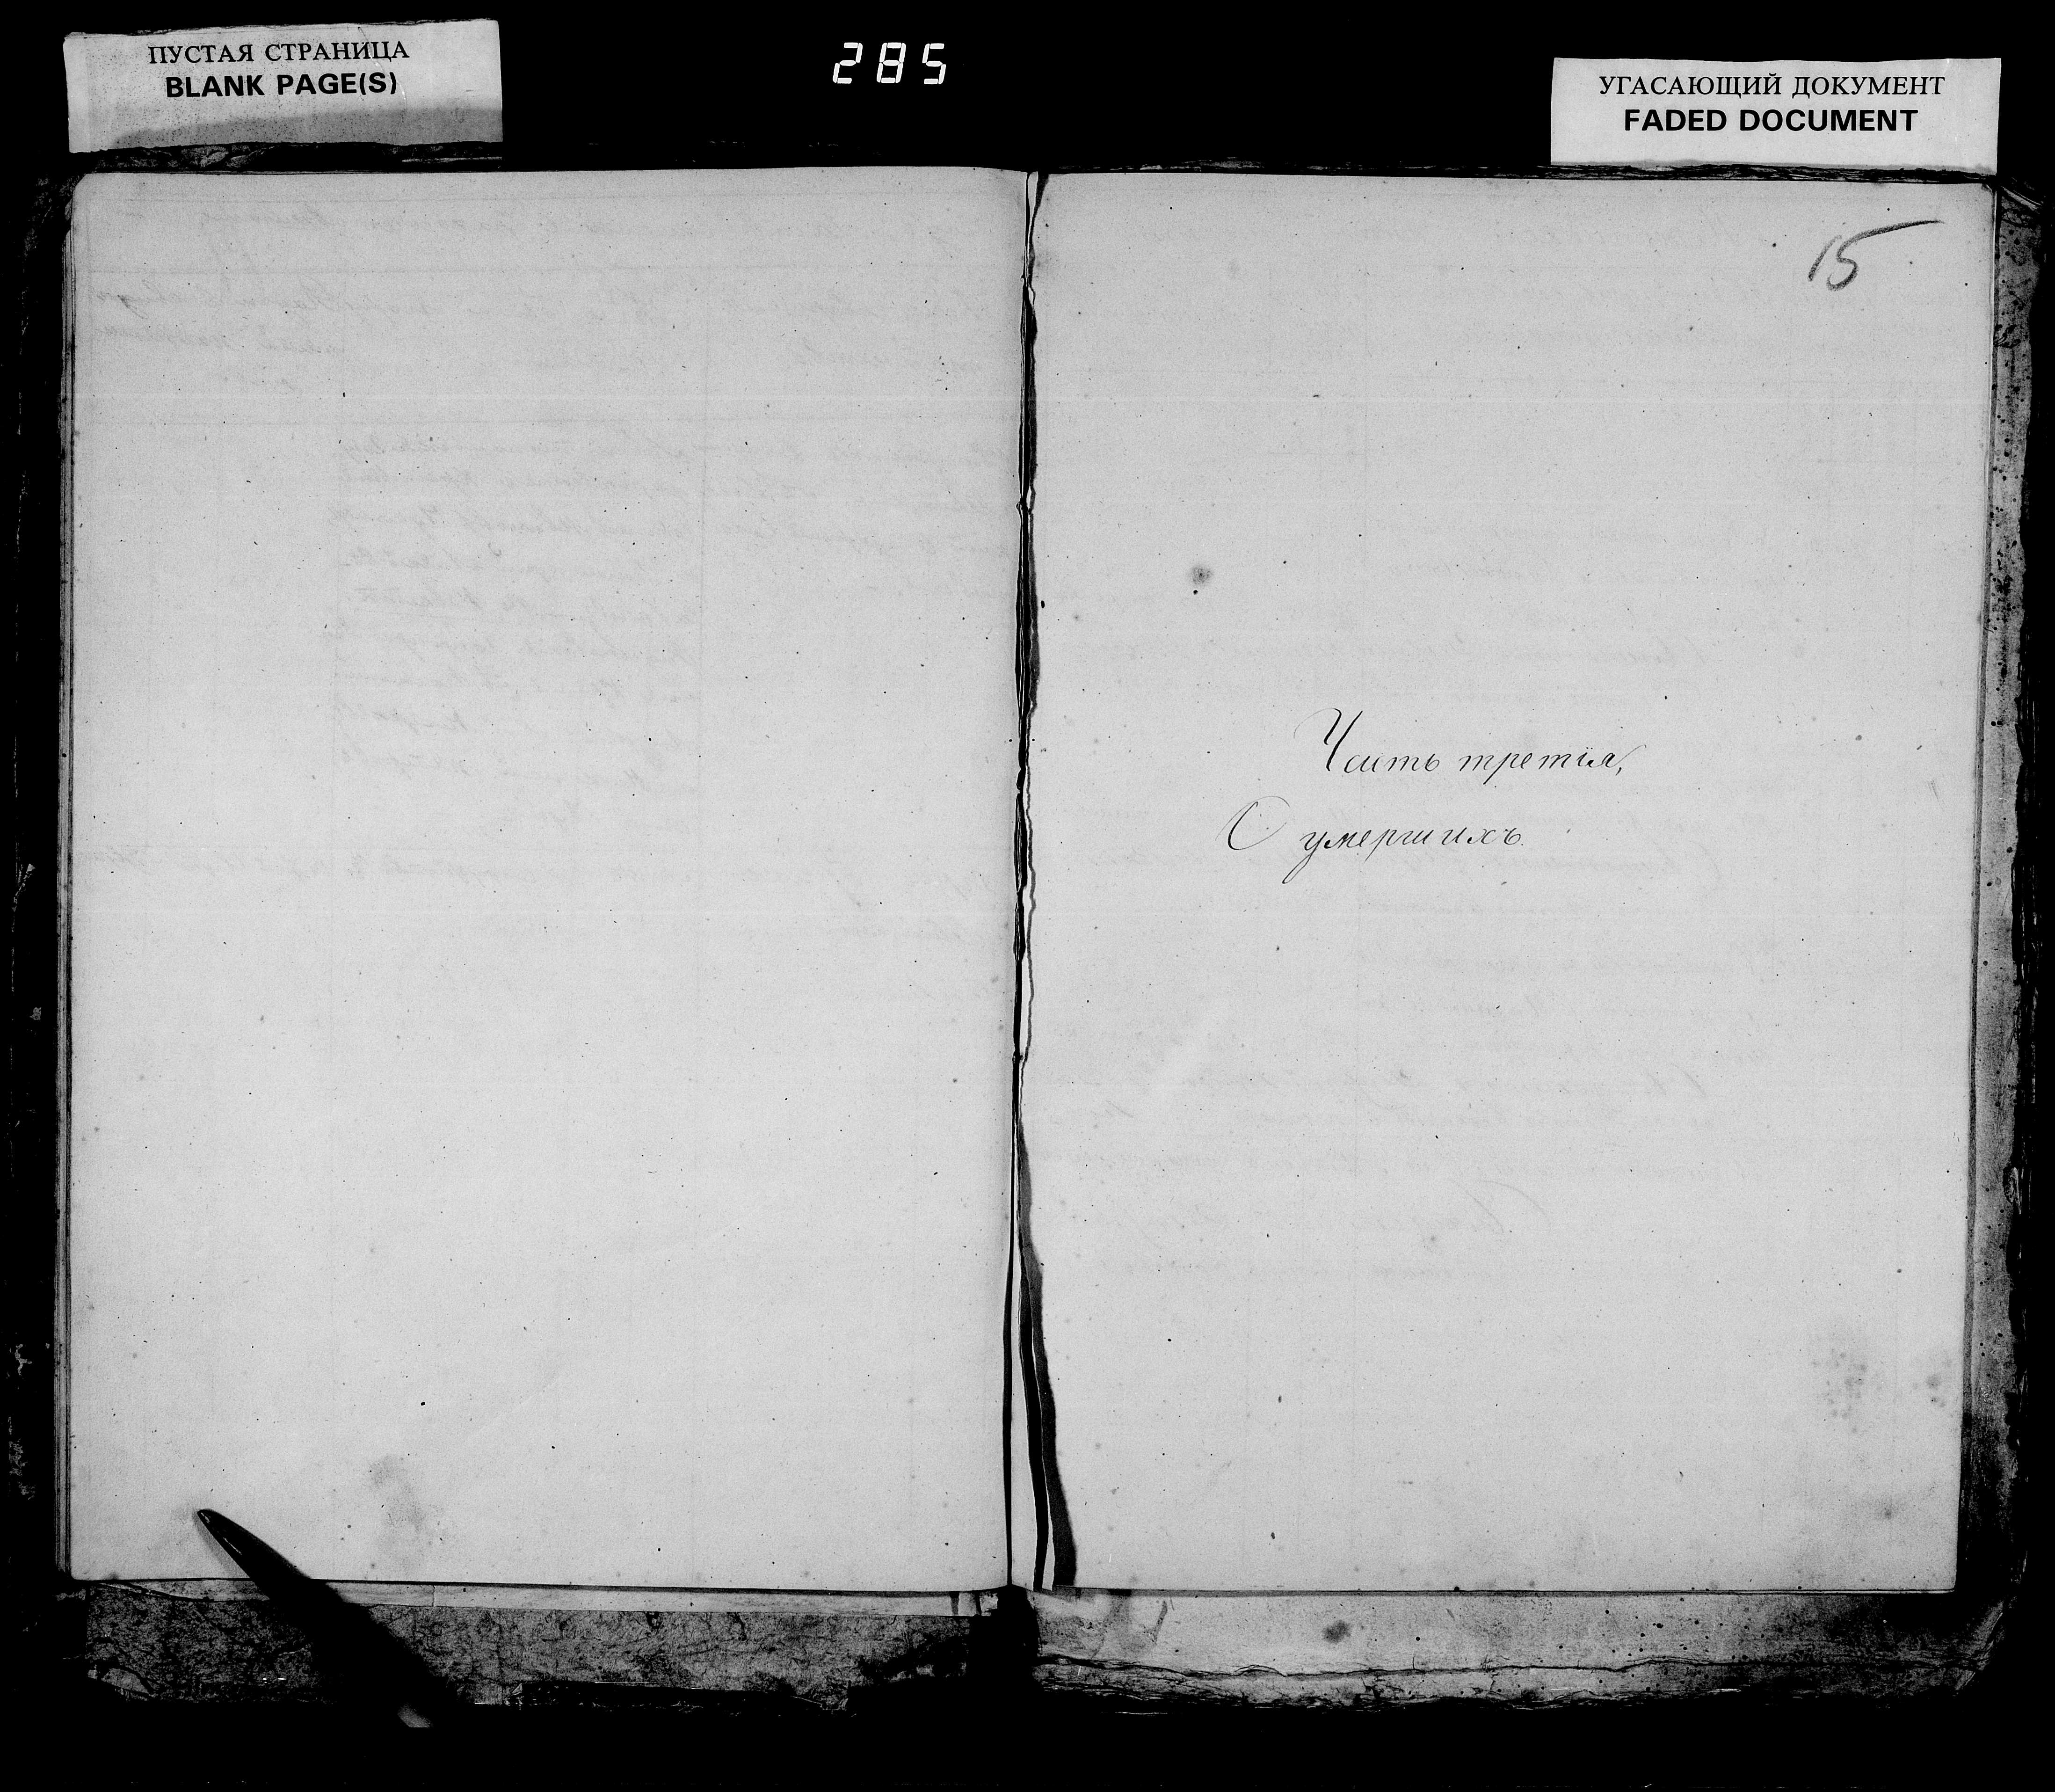 ПУСТАЯ СТРАНИЦА
BLANK PAGE(S)
285
УГАСАЮЩИЙ ДОКУМЕНТ
FADED DOCUMENT
15
Часть третія,
О умершихъ.